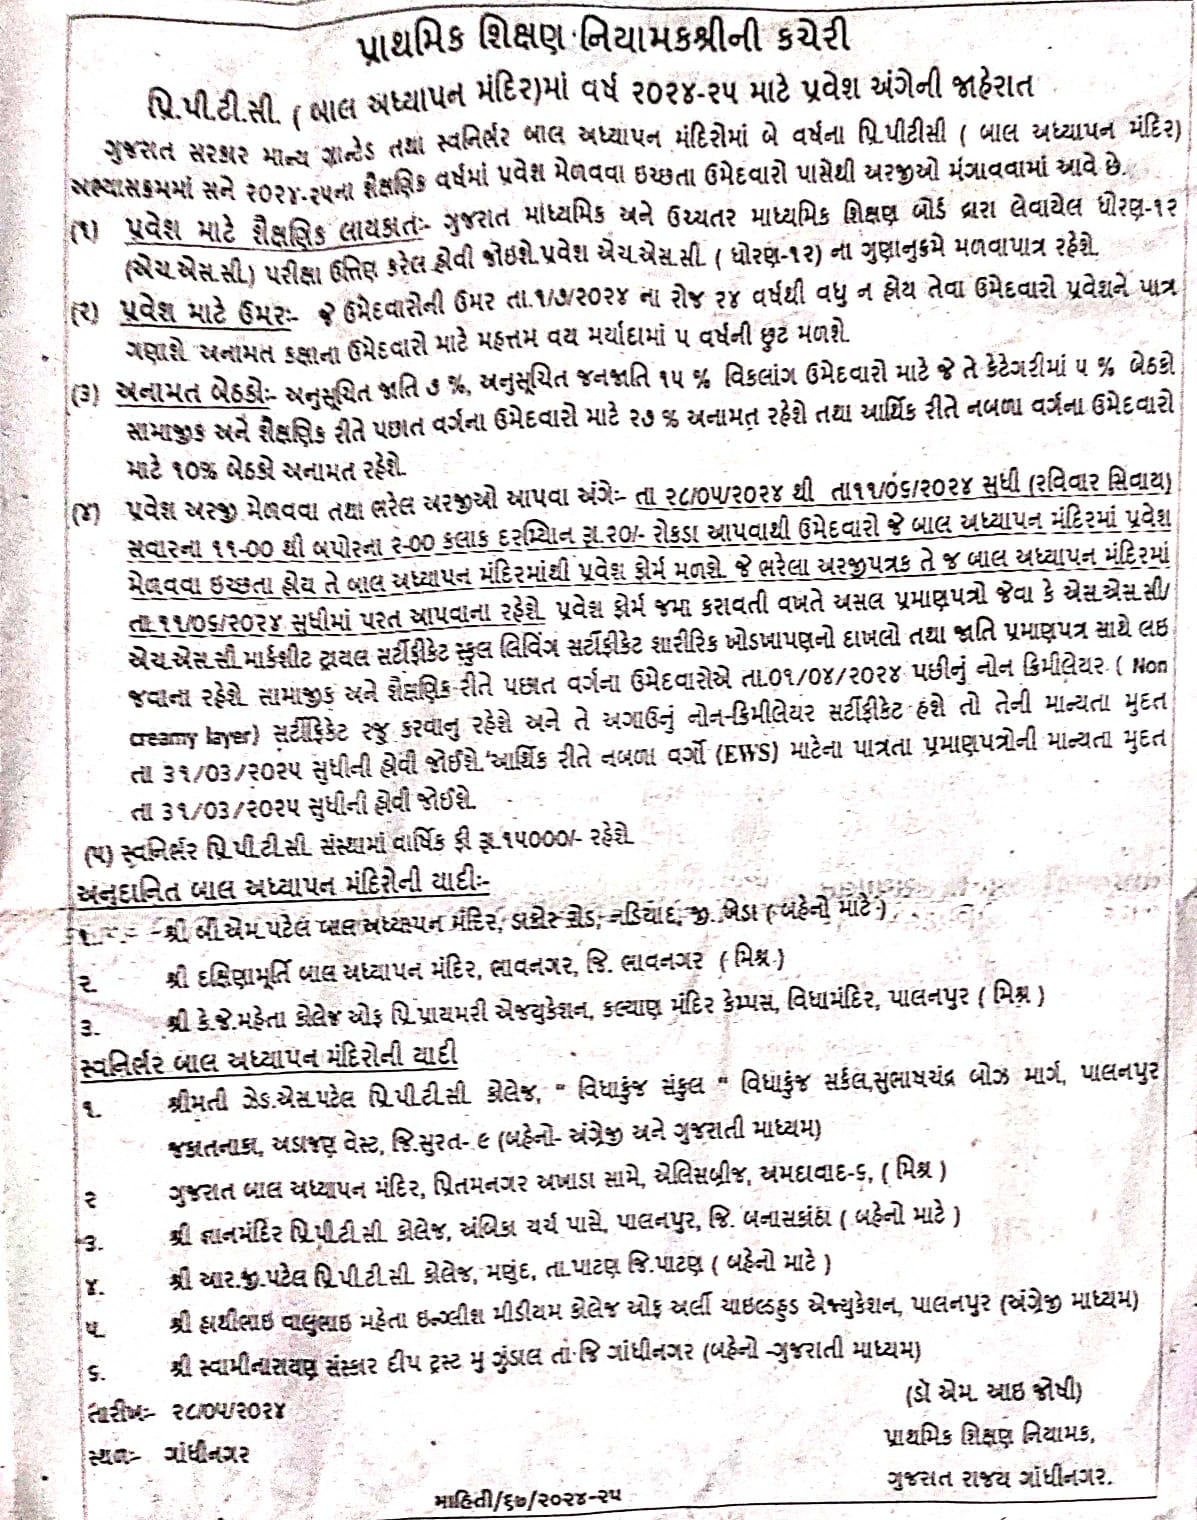 પ્રાથમિક શિક્ષણ નિયામકશ્રીની કચેરી
પ્રિ.પી.ટી.સી. ( બાલ અધ્યાપન મંદિર)માં વર્ષ ૨૦૨૪-૨૫ માટે પ્રવેશ અંગેની જાહેરાત
ગુજરાત સરકાર માન્ય ગ્રાન્ટેડ તથા સ્વનિર્ભર બાલ અધ્યાપન મંદિરોમાં બે વર્ષના પ્રિ.પીટીસી ( બાલ અધ્યાપન મંદિર)
અભ્યાસક્રમમાં સને ૨૦૨૪-૨૫ના શૈક્ષણિક વર્ષમાં પ્રવેશ મેળવવા ઇચ્છતા ઉમેદવારો પાસેથી અરજીઓ મંગાવવામાં આવે છે.
(૧) પ્રવેશ માટે શૈક્ષણિક લાયકાતઃ- ગુજરાત માધ્યમિક અને ઉચ્ચતર માધ્યમિક શિક્ષણ બોર્ડ દ્વારા લેવાયેલ ધોરણ-૧૨
(એચ.એસ.સી.) પરીક્ષા ઉત્તિણ કરેલ હોવી જોઇશે.પ્રવેશ એચ.એસ.સી. ( ધોરણ-૧૨) ના ગુણાનુક્રમે મળવાપાત્ર રહેશે.
(૨) પ્રવેશ માટે ઉમરઃ- જે ઉમેદવારોની ઉમર તા.૧/૭/૨૦૨૪ ના રોજ ૨૪ વર્ષથી વધુ ન હોય તેવા ઉમેદવારો પ્રવેશને પાત્ર
ગણાશે. અનામત કક્ષાના ઉમેદવારો માટે મહત્તમ વય મર્યાદામાં ૫ વર્ષની છુટ મળશે.
(૩) અનામત બેઠકોઃ- અનુસૂચિત જાતિ ૭ %, અનુસૂચિત જનજાતિ ૧૫ % વિકલાંગ ઉમેદવારો માટે જે તે કેટેગરીમાં ૫ % બેઠકો
સામાજીક અને શૈક્ષણિક રીતે પછાત વર્ગના ઉમેદવારો માટે ૨૭ % અનામત રહેશે તથા આર્થિક રીતે નબળા વર્ગના ઉમેદવારો
માટે ૧૦% બેઠકો અનામત રહેશે.
(૪) પ્રવેશ અરજી મેળવવા તથા ભરેલ અરજીઓ આપવા અંગેઃ- તા ૨૮/૦૫/૨૦૨૪ થી તા૧૧/૦૬/૨૦૨૪ સુધી (રવિવાર સિવાય)
સવારના ૧૧-૦૦ થી બપોરના ૨-૦૦ કલાક દરમ્યિાન રૂ.૨૦/- રોકડા આપવાથી ઉમેદવારો જે બાલ અધ્યાપન મંદિરમાં પ્રવેશ
મેળવવા ઇચ્છતા હોય તે બાલ અધ્યાપન મંદિરમાંથી પ્રવેશ ફોર્મ મળશે. જે ભરેલા અરજીપત્રક તે જ બાલ અધ્યાપન મંદિરમાં
તા.૧૧/૦૬/૨૦૨૪ સુધીમાં પરત આપવાના રહેશે. પ્રવેશ ફોર્મ જમા કરાવતી વખતે અસલ પ્રમાણપત્રો જેવા કે એસ.એસ.સી/
એચ.એસ.સી.માર્કશીટ ટ્રાયલ સર્ટીફીકેટ સ્કુલ લિવિંગ સર્ટીફીકેટ શારીરિક ખોડખાપણનો દાખલો તથા જાતિ પ્રમાણપત્ર સાથે લઇ
જવાના રહેશે. સામાજીક અને શૈક્ષણિક-રીતે પછાત વર્ગના ઉમેદવારોએ તા.૦૧/૦૪/૨૦૨૪ પછીનું નોન ક્રિમીલેયર ( Non
creamy layer) સર્ટીફિકેટ રજુ કરવાનુ રહેશે અને તે અગાઉનું નોન-ક્રિમીલેયર સર્ટીફીકેટ હશે તો તેની માન્યતા મુદત
તા ૩૧/૦૩/૨૦૨૫ સુધીની હોવી જોઈશે.આર્થિક રીતે નબળા વર્ગો (EWS) માટેના પાત્રતા પ્રમાણપત્રોની માન્યતા મુદત
તા ૩૧/૦૩/૨૦૨૫ સુધીની હોવી જોઈશે.
(૫) સ્વનિર્ભર પ્રિ.પી.ટી.સી. સંસ્થામાં વાર્ષિક ફી રૂ.૧૫૦૦૦/- રહેશે.
અનુદાનિત બાલ અધ્યાપન મંદિરોની યાદીઃ-
૧. શ્રી. બી.એમ.પટેલ બાલ અધ્યાપન મંદિર, ડાકોર રોડ, નડિયાદ, જી. ખેડા ( બહેનો માટે )
૨. શ્રી દક્ષિણામૂર્તિ બાલ અધ્યાપન મંદિર, ભાવનગર, જિ. ભાવનગર ( મિશ્ર )
૩. શ્રી કે.જે.મહેતા કોલેજ ઓફ પ્રિ.પ્રાયમરી એજયુકેશન, કલ્યાણ મંદિર કેમ્પસ, વિધામંદિર, પાલનપુર ( મિશ્ર )
સ્વનિર્ભર બાલ અધ્યાપન મંદિરોની યાદી
૧. શ્રીમતી ઝેડ.એસ.પટેલ પ્રિ.પી.ટી.સી. કોલેજ, " વિધાકુંજ સંકુલ " વિધાકુંજ સર્કલ,સુભાષચંદ્ર બોઝ માર્ગ, પાલનપુર
જકાતનાકા, અડાજણ વેસ્ટ, જિ.સુરત- ૯ (બહેનો- અંગ્રેજી અને ગુજરાતી માધ્યમ)
૨ ગુજરાત બાલ અધ્યાપન મંદિર, પ્રિતમનગર અખાડા સામે, એલિસબ્રીજ, અમદાવાદ-૬, ( મિશ્ર )
૩. શ્રી જ્ઞાનમંદિર પ્રિ.પી.ટી.સી. કોલેજ, અંબિકા ચર્ચ પાસે, પાલનપુર, જિ. બનાસકાંઠા ( બહેનો માટે )
૪. શ્રી આર.જી.પટેલ પ્રિ.પી.ટી.સી. કોલેજ, મણુંદ, તા.પાટણ જિ.પાટણ ( બહેનો માટે )
૫. શ્રી હાથીભાઇ વાલુભાઇ મહેતા ઇન્ગ્લીશ મીડીયમ કોલેજ ઓફ અર્લી ચાઇલ્ડહુડ એજ્યુકેશન, પાલનપુર (અંગ્રેજી માધ્યમ)
૬. શ્રી સ્વામીનારાયણ સંસ્કાર દીપ ટ્રસ્ટ મુ ઝુંડાલ તા જિ ગાંધીનગર (બહેનો -ગુજરાતી માધ્યમ)
(ડૉ એમ. આઇ જોષી)
તારીખઃ- ૨૮/૦૫/૨૦૨૪
પ્રાથમિક શિક્ષણ નિયામક,
સ્થળઃ- ગાંધીનગર
ગુજરાત રાજય ગાંધીનગર.
માહિતી/૬૭/૨૦૨૪-૨૫